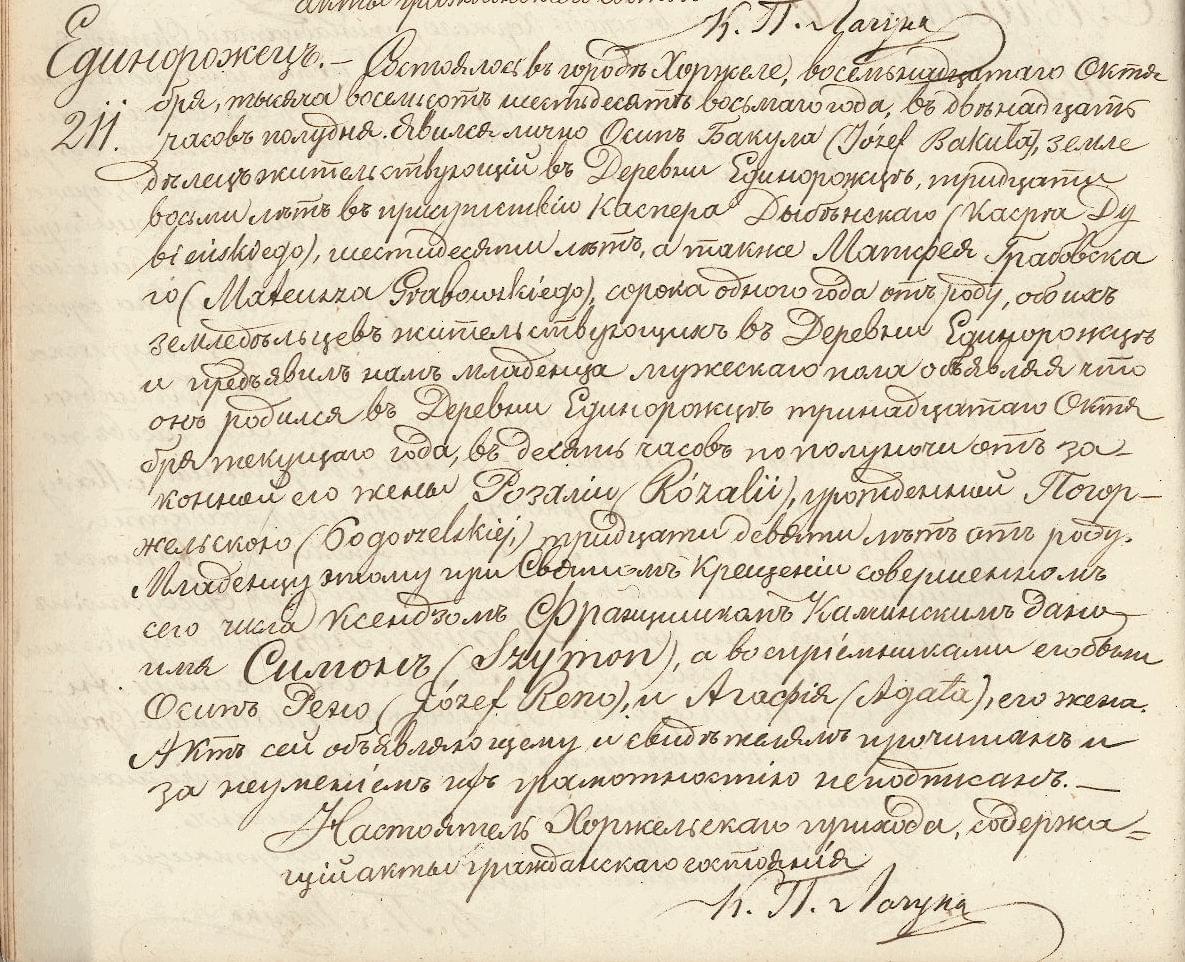 акты гражданскаго состоянія
К. П. Лагуна
Единорожецъ. — Состоялось въ городѣ Хоржеле, восемьнадцатаго Октя
211.
бря, тысяча восемьсотъ шестьдесятъ восьмаго года, въ двѣнадцать
часовъ полудня. Явился лично Осипъ Бакула (Józef Bakuła), земле
дѣлецъ жительствующій въ Деревни Единорожцѣ, тридцати
восьми лѣтъ въ присутствіи Каспера Дыбѣнскаго (Kacpra Dy
bieńskiego), шестидесяти лѣтъ, а также Матфея Грабовска
го (Mateusza Grabowskiego), сорока одного года отъ роду, обоихъ
земледѣльцевъ жительствующихъ въ Деревни Единорожцѣ
и предъявилъ намъ младенца мужескаго пола объявляя что
онъ родился въ Деревни Единорожцѣ тринадцатаго Октя
бря текущаго года, въ десять часовъ по полуночи отъ за-
конной его жены Розаліи (Rózalii), урожденной Погор-
жельскою (Pogorzelskiej,) тридцати девяти лѣтъ отъ роду.
Младенцу этому при Святомъ Крещеніи совершенномъ
сего числа Ксендзомъ Францишкомъ Каминскимъ дано
имя Симонъ (Szymon), а воспріемниками его были
Осипъ Рено (Józef Reno), и Агафія (Agata), его жена.
Актъ сей объявляющему и свидѣтелямъ прочитанъ и
за неумѣніемъ ихъ грамотностію неподписанъ. —
Настоятель Хоржельскаго прихода, содержа=
щій акты гражданскаго состоянія
К. П. Лагуна